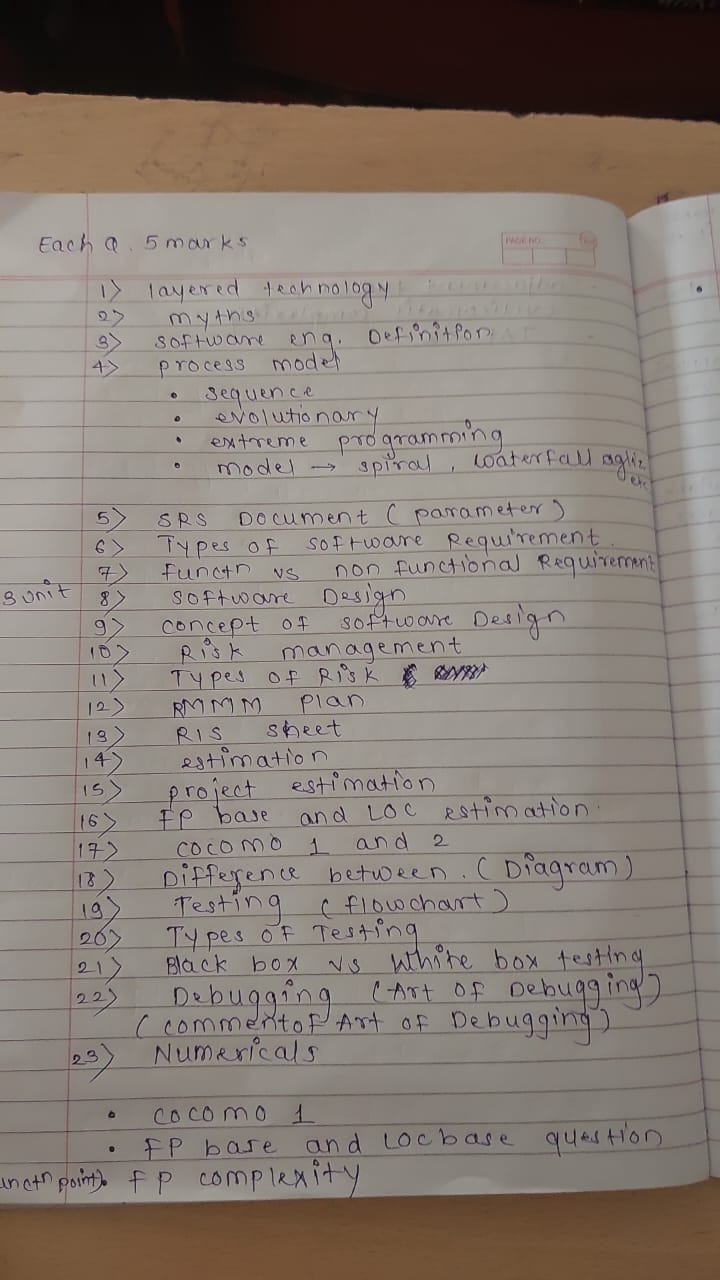 Each Q. 5 marks
PAGE NO.
1) layered technology
2) myths
3) software eng. Definition
4) process model
• sequence
• evolutionary
• extreme programming
• model → spiral, waterfall
etc
5) SRS Document (parameter)
6) Types of software Requirement.
7) functn vs non functional Requirement
3 unit 8) software Design
9) concept of software Design
10) Risk management
11) Types of Risk
12) RMMM plan
13) RIS sheet
14) estimation
15) project estimation
16) FP base and LOC estimation.
17) cocomo 1 and 2
18) Difference between. (Diagram)
19) Testing (flowchart)
20) Types of Testing
21) Black box vs White box testing
22) Debugging (Art of Debugging)
(comment of Art of Debugging)
23) Numericals
• cocomo 1
• FP base and LOC base question
unctn point). FP complexity